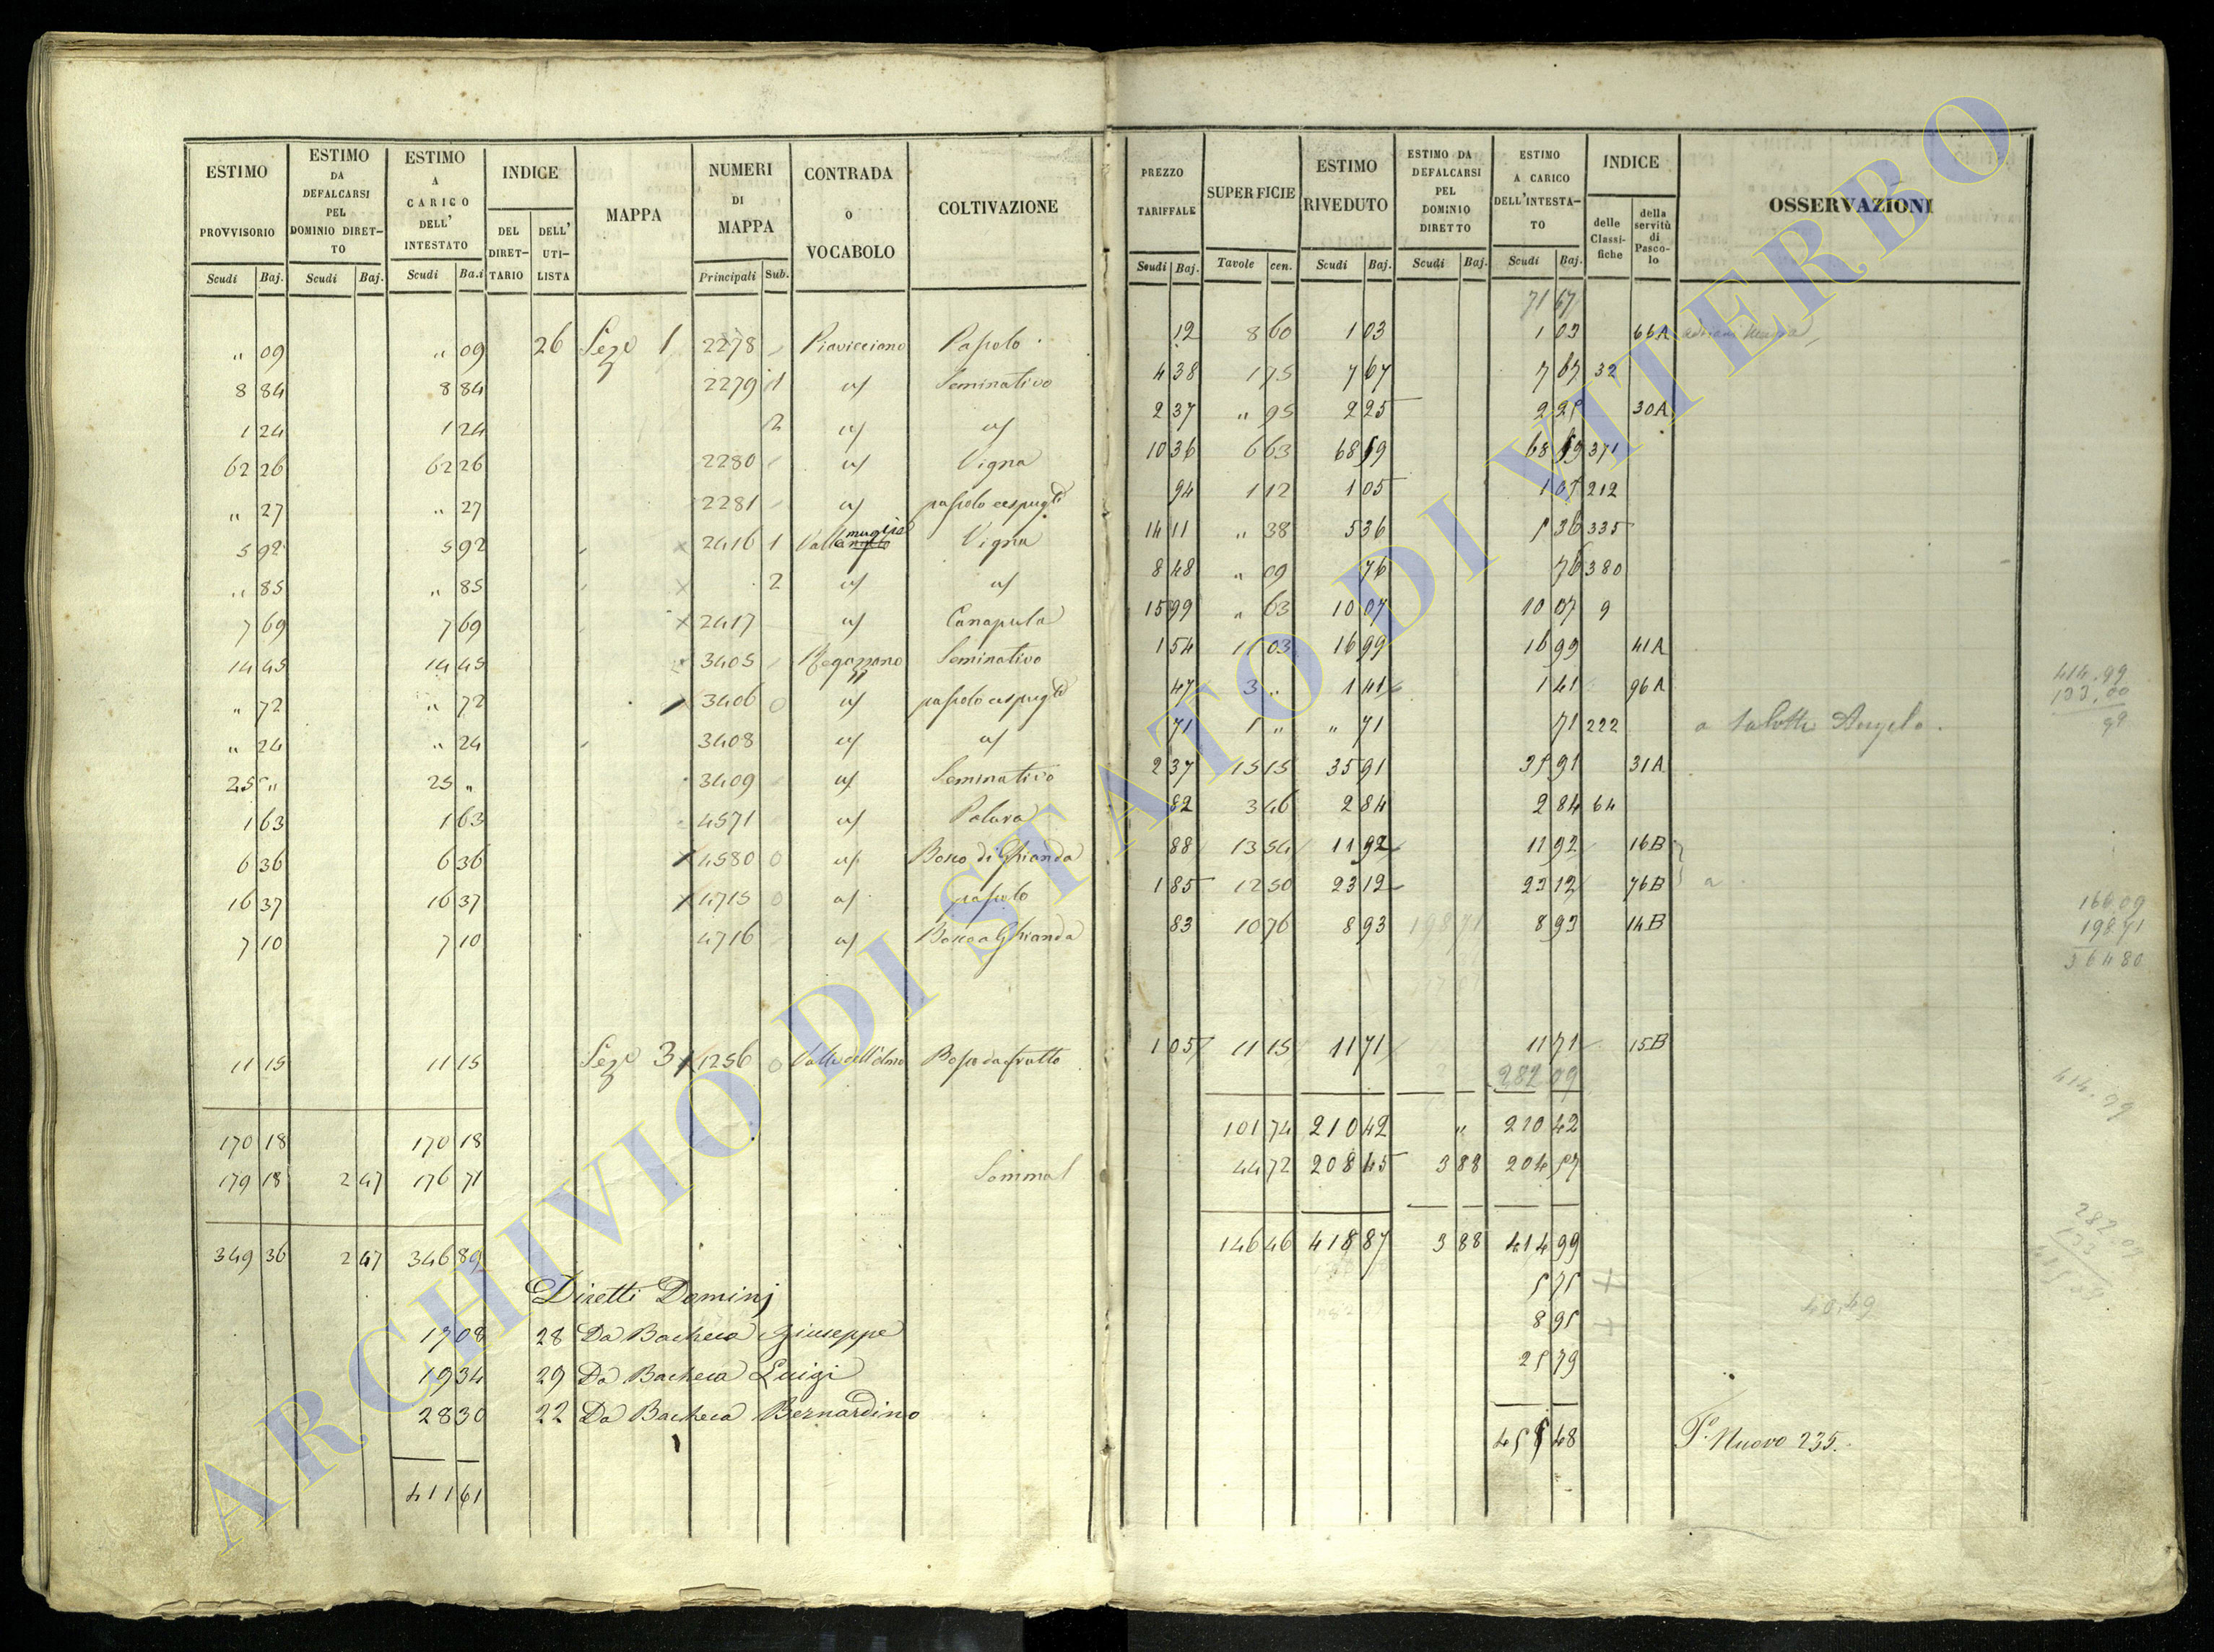 ESTIMO PROVVISORIO | ESTIMO DA DEFALCARSI PEL DOMINIO DIRET-TO | ESTIMO A CARICO DELL' INTESTATO | INDICE | MAPPA | NUMERI DI MAPPA | CONTRADA O VOCABOLO | COLTIVAZIONE
DEL DIRET-TARIO | DELL' UTI-LISTA
Scudi | Baj. | Scudi | Baj. | Scudi | Ba.i | Principali | Sub.
" 09 | " 09 | 26 | Sezе 1 | 2278 | Piavicciano | Pascolo
8 84 | 8 84 | 2279 | 1 | a/ | Seminativo
1 24 | 1 24 | 2 | a/ | a/
62 26 | 62 26 | 2280 | a/ | Vigna
" 27 | " 27 | 2281 | a/ | pascolo cespugto
5 92 | 5 92 | 2416 | 1 | Vigna
" 85 | " 85 | 2 | a/ | a/
7 69 | 7 69 | 2417 | a/ | Canapula
14 45 | 14 45 | 3405 | Seminativo
" 72 | " 72 | 3406 | 0 | a/ | pascolo cespugto
" 24 | " 24 | 3408 | a/ | a/
25 " | 25 " | 3409 | a/ | Seminativo
1 63 | 1 63 | 4571 | a/
6 36 | 6 36 | 4580 | 0 | a/ | Bosco di Ghianda
16 37 | 16 37 | 4715 | 0 | a/ | pascolo
7 10 | 7 10 | 4716 | a/ | Bosco a Ghianda
11 15 | 11 15 | Seze 3 | 1256 | 0 | Valle dell'olmo | Bosco da frutto
170 18 | 170 18
179 18 | 2 47 | 176 71 | Somma
349 36 | 2 47 | 346 89
Diretti Dominj
17 08 | 28 | Da Bacheca Giuseppe
19 34 | 29 | Da Bacheca Luigi
28 30 | 22 | Da Bacheca Bernardino
411 61
PREZZO TARIFFALE | SUPERFICIE | ESTIMO RIVEDUTO | ESTIMO DA DEFALCARSI PEL DOMINIO DIRETTO | ESTIMO A CARICO DELL'INTESTA-TO | INDICE | OSSERVAZIONI
delle Classi-fiche | della servitù di Pasco-lo
Scudi | Baj. | Tavole | cen. | Scudi | Baj. | Scudi | Baj. | Scudi | Baj.
71 67
12 | 8 60 | 1 03 | 1 03 | 66A
4 38 | 1 75 | 7 67 | 7 67 | 32
2 37 | " 95 | 2 25 | 2 25 | 30A
10 36 | 6 63 | 68 69 | 68 69 | 371
94 | 1 12 | 1 05 | 1 05 | 212
14 11 | " 38 | 5 36 | 5 36 | 335
8 48 | " 09 | 76 | 76 | 380
15 99 | " 63 | 10 07 | 10 07 | 9
1 54 | 11 03 | 16 99 | 16 99 | 41A
47 | 3 " | 1 41 | 1 41 | 96A
71 | 1 " | " 71 | 71 | 222 | a Salotti Angelo.
2 37 | 15 15 | 35 91 | 35 91 | 31A
82 | 3 46 | 2 84 | 2 84 | 64
88 | 13 54 | 11 92 | 11 92 | 16B
1 85 | 12 50 | 23 12 | 23 12 | 76B | a
83 | 10 76 | 8 93 | 198 71 | 8 93 | 14B
1 05 | 11 15 | 11 71 | 11 71 | 15B
282 09
101 74 | 210 42 | " | 210 42
44 72 | 208 45 | 3 88 | 204 57
146 46 | 418 87 | 3 88 | 414 99
5 75 +
8 95 +
25 79
455 48 | Po. Nuovo 235.
40.49
414.99
133.00
99
166 09
198 71
364 80
414.99
282.09
133
ARCHIVIO DI STATO DI VITERBO